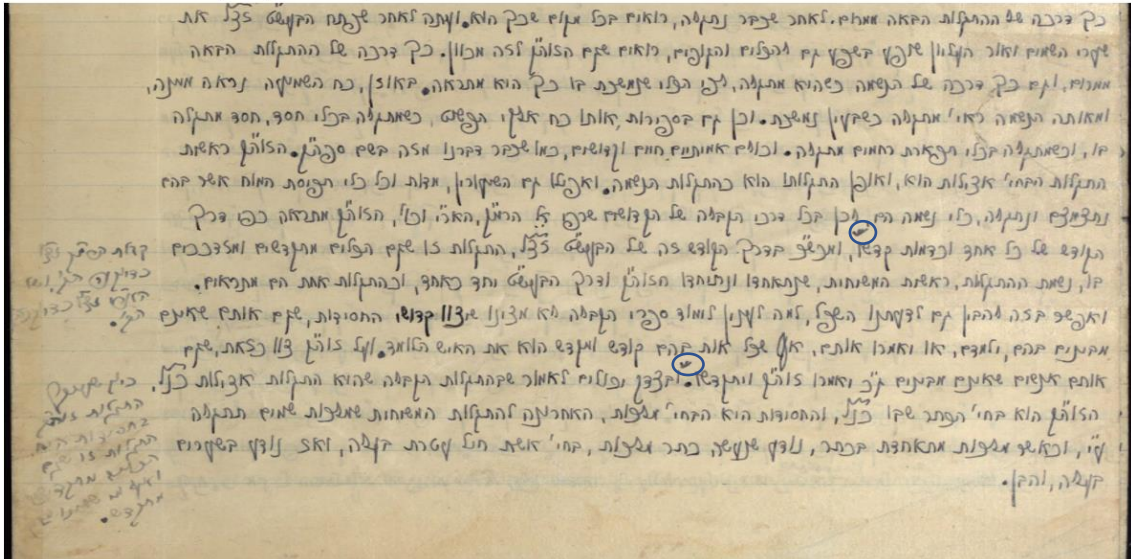 כך דרכה של ההתגלות הבאה ממרום. לאחר שכבר נתגלה, רואים בכל מקום שכך הוא. ועתה לאחר שפתח הבעש״ט זצ״ל את
שערי השמים ואור העליון שופע בשפע גם להכלים והגופים, רואים שגם הזוה״ק לזה מכוון. כך דרכה של ההתגלות הבאה
ממרום, וגם כך דרכה של הנשמה כשהיא מתגלה, לפי הכלי שנמשכת בו כך היא מתראה. באוזן, כח השמיעה נראה ממנה,
ומאותה הנשמה ראי׳ מתגלה כשבעין נמשכת. וכן גם בספירות, אותו כח אלקי הפשוט כשמתגלה בכלי חסד, חסד מתגלה
בו, וכשמתגלה בכלי תפארת רחמים מתגלה. וכולם אמיתיים חיים וקדושים, כמו שכבר דברנו מזה בשם ספה״ק. הזוה״ק ראשית
התגלות הבחי׳ אצילות הוא, ואופן התגלותו הוא כהתגלות הנשמה. ואפילו גם השיעורין, מדות וכל כלי תפיסת המוח אשר בהם
נתצמצם ונתגלה, כלי נשמה הם. וכן בכל דרכי הקבלה של הקדושים שרפי אל הרמ״ק, האר״י וכו׳, הזוה״ק מתראה כפי דרך
הקודש של כל אחד וכדמות קדשו, ומכש״כ בדרך הקודש זה של הבעש״ט זצ״ל, התגלות זו שגם הכלים מתקדשים ומזדככים
בו, נשמת ההתגלות, ראשית המשיחיות, שנתאחדו ונתיחדו הזוה״ק ודרך הבעש״ט יחד כאחד, וכהתגלות אחת הם מתראים.
ואפשר בזה להבין גם לדעתנו השפל, למה לענין לימוד ספרי הקבלה לא מצינו שיצוו קדושי החסידות, שגם אותם שאינם
מבינים בהם, ילמדם, או יאמרו אותם, אף שכל אות בהם קודש ומקדש הוא את האיש הלומד. ועל זוה״ק צוו כזאת, שגם
אותם אנשים שאינם מבינים ג״כ יאמרו זוה״ק ויתקדשו. ובצדק יכולים לאמור שבהתגלות הקבלה שהוא התגלות אצילות כנ״ל,
הזוה״ק הוא בחי׳ הכתר שבו כנ״ל, והחסידות היא הבחי׳ מלכות, האחרונה להתגלות המשיחית שמלכות שמים תתגלה
ע״י, וכאשר מלכות מתאחדת בכתר, נודע שנעשה כתר מלכות, בחי׳ אשת חיל עטרת בעלה, ואז נודע בשערים
בעלה, והבן.
התגלות זו שגם
הכלים